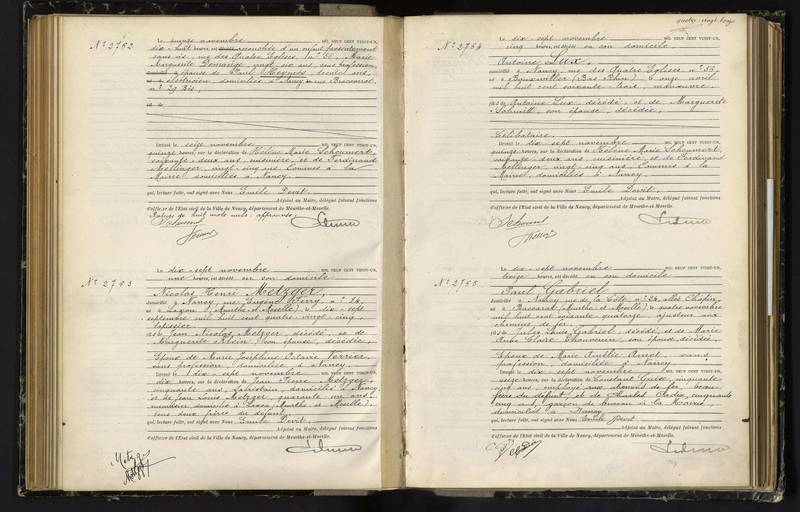 N° 2752.
Le quinze novembre MIL NEUF CENT VINGT-UN,
dix-huit heures, est accouchée d'un enfant présentement
sans vie, rue des Quatre Eglises, n° 56, Marie
Marguerite Demange, vingt six ans, sans profession,
épouse de Paul trente ans,
électricien, domiciliés à Nancy, rue
n° 29 Bis,
Devant le seize novembre MIL NEUF CENT VINGT-UN,
quinze heures, sur la déclaration de Hélène Marie
soixante-deux ans, et de Ferdinand
vingt-cinq ans, Commis à la
Mairie, domiciliés à Nancy,
qui, lecture faite, ont signé avec Nous Emile Devit,
Adjoint au Maire, délégué faisant fonctions
d'officier de l'Etat civil de la Ville de Nancy, département de Meurthe-et-Moselle.
Rature de huit mots nuls, approuvée.
N° 2753
Le dix-sept novembre MIL NEUF CENT VINGT-UN,
une heures, est décédé en son domicile
Nicolas Henri Metzger,
domicilié à Nancy, rue Eugène Ferry, n° 24,
né à (Meurthe et Moselle), le dix-sept
septembre mil huit cent quatre-vingt-cinq,
tapissier,
fils de Jean Nicolas Metzger, décédé, et de
Marguerite Klein, son épouse, décédée,
Epoux de Marie Joséphine Octavie Verrier,
sans profession, domiciliée à Nancy.
Devant le dix-sept novembre MIL NEUF CENT VINGT-UN,
dix heures, sur la déclaration de Jean Pierre Metzger,
cinquante ans, domicilié à Nancy,
et de Jean Louis Metzger, quarante un ans,
domicilié à (Meurthe et Moselle),
tous deux frère du défunt,
qui, lecture faite, ont signé avec Nous Emile Devit,
Adjoint au Maire, délégué faisant fonctions
d'officier de l'Etat civil de la Ville de Nancy, département de Meurthe-et-Moselle.
quatre-vingt
N° 2754
Le dix-sept novembre MIL NEUF CENT VINGT-UN,
cinq heures, est décédé en son domicile
Antoine Lux,
domicilié à Nancy, rue des Quatre Eglises, n° 53,
né à Bouxwiller (Bas Rhin), le onze avril
mil huit cent soixante-trois, manœuvre,
fils de Antoine Lux, décédé, et de Marguerite
Schmitt, son épouse, décédée,
Célibataire.
Devant le dix-sept novembre MIL NEUF CENT VINGT-UN,
quinze heures, sur la déclaration de Hélène Marie
soixante-deux ans, et de Ferdinand
vingt-cinq ans, Commis à la
Mairie, domiciliés à Nancy,
qui, lecture faite, ont signé avec Nous Emile Devit,
Adjoint au Maire, délégué faisant fonctions
d'officier de l'Etat civil de la Ville de Nancy, département de Meurthe-et-Moselle.
N° 2755
Le dix-sept novembre MIL NEUF CENT VINGT-UN,
treize heures, est décédé en son domicile
Paul Gabriel
domicilié à Nancy, rue de la Côte, n° 24,
né à Baccarat (Meurthe et Moselle), le quatre novembre
mil huit cent soixante-quatorze, ajusteur aux
chemins de fer,
fils de Jules Louis Gabriel, décédé, et de Marie
Anne Claire son épouse, décédée,
Epoux de Marie Amélie sans
profession, domiciliée à Nancy.
Devant le dix-sept novembre MIL NEUF CENT VINGT-UN,
seize heures, sur la déclaration de Constant cinquante
ans, employé aux chemins de fer, beau-
frère du défunt, et de Charles cinquante
cinq ans, garçon de bureau à la Mairie,
domiciliés à Nancy,
qui, lecture faite, ont signé avec Nous Emile Devit,
Adjoint au Maire, délégué faisant fonctions
d'officier de l'Etat civil de la Ville de Nancy, département de Meurthe-et-Moselle.